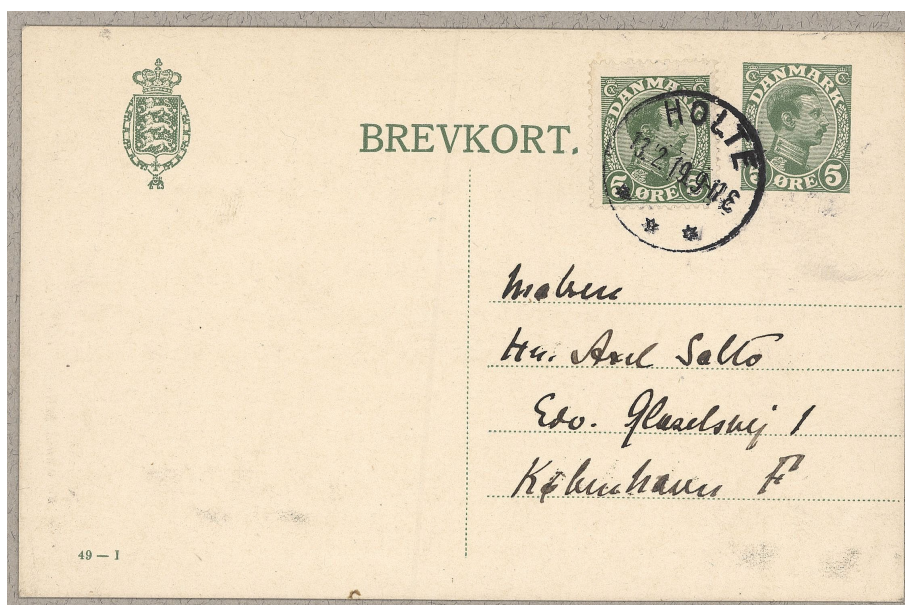 BREVKORT.
DANMARK
5 ØRE 5
DANMARK
5 ØRE 5
HOLTE
13.2.19.9-11 E
Maleren
Hr. Axel Salto
Edv. Glæselsvej 1
København F
49 — I